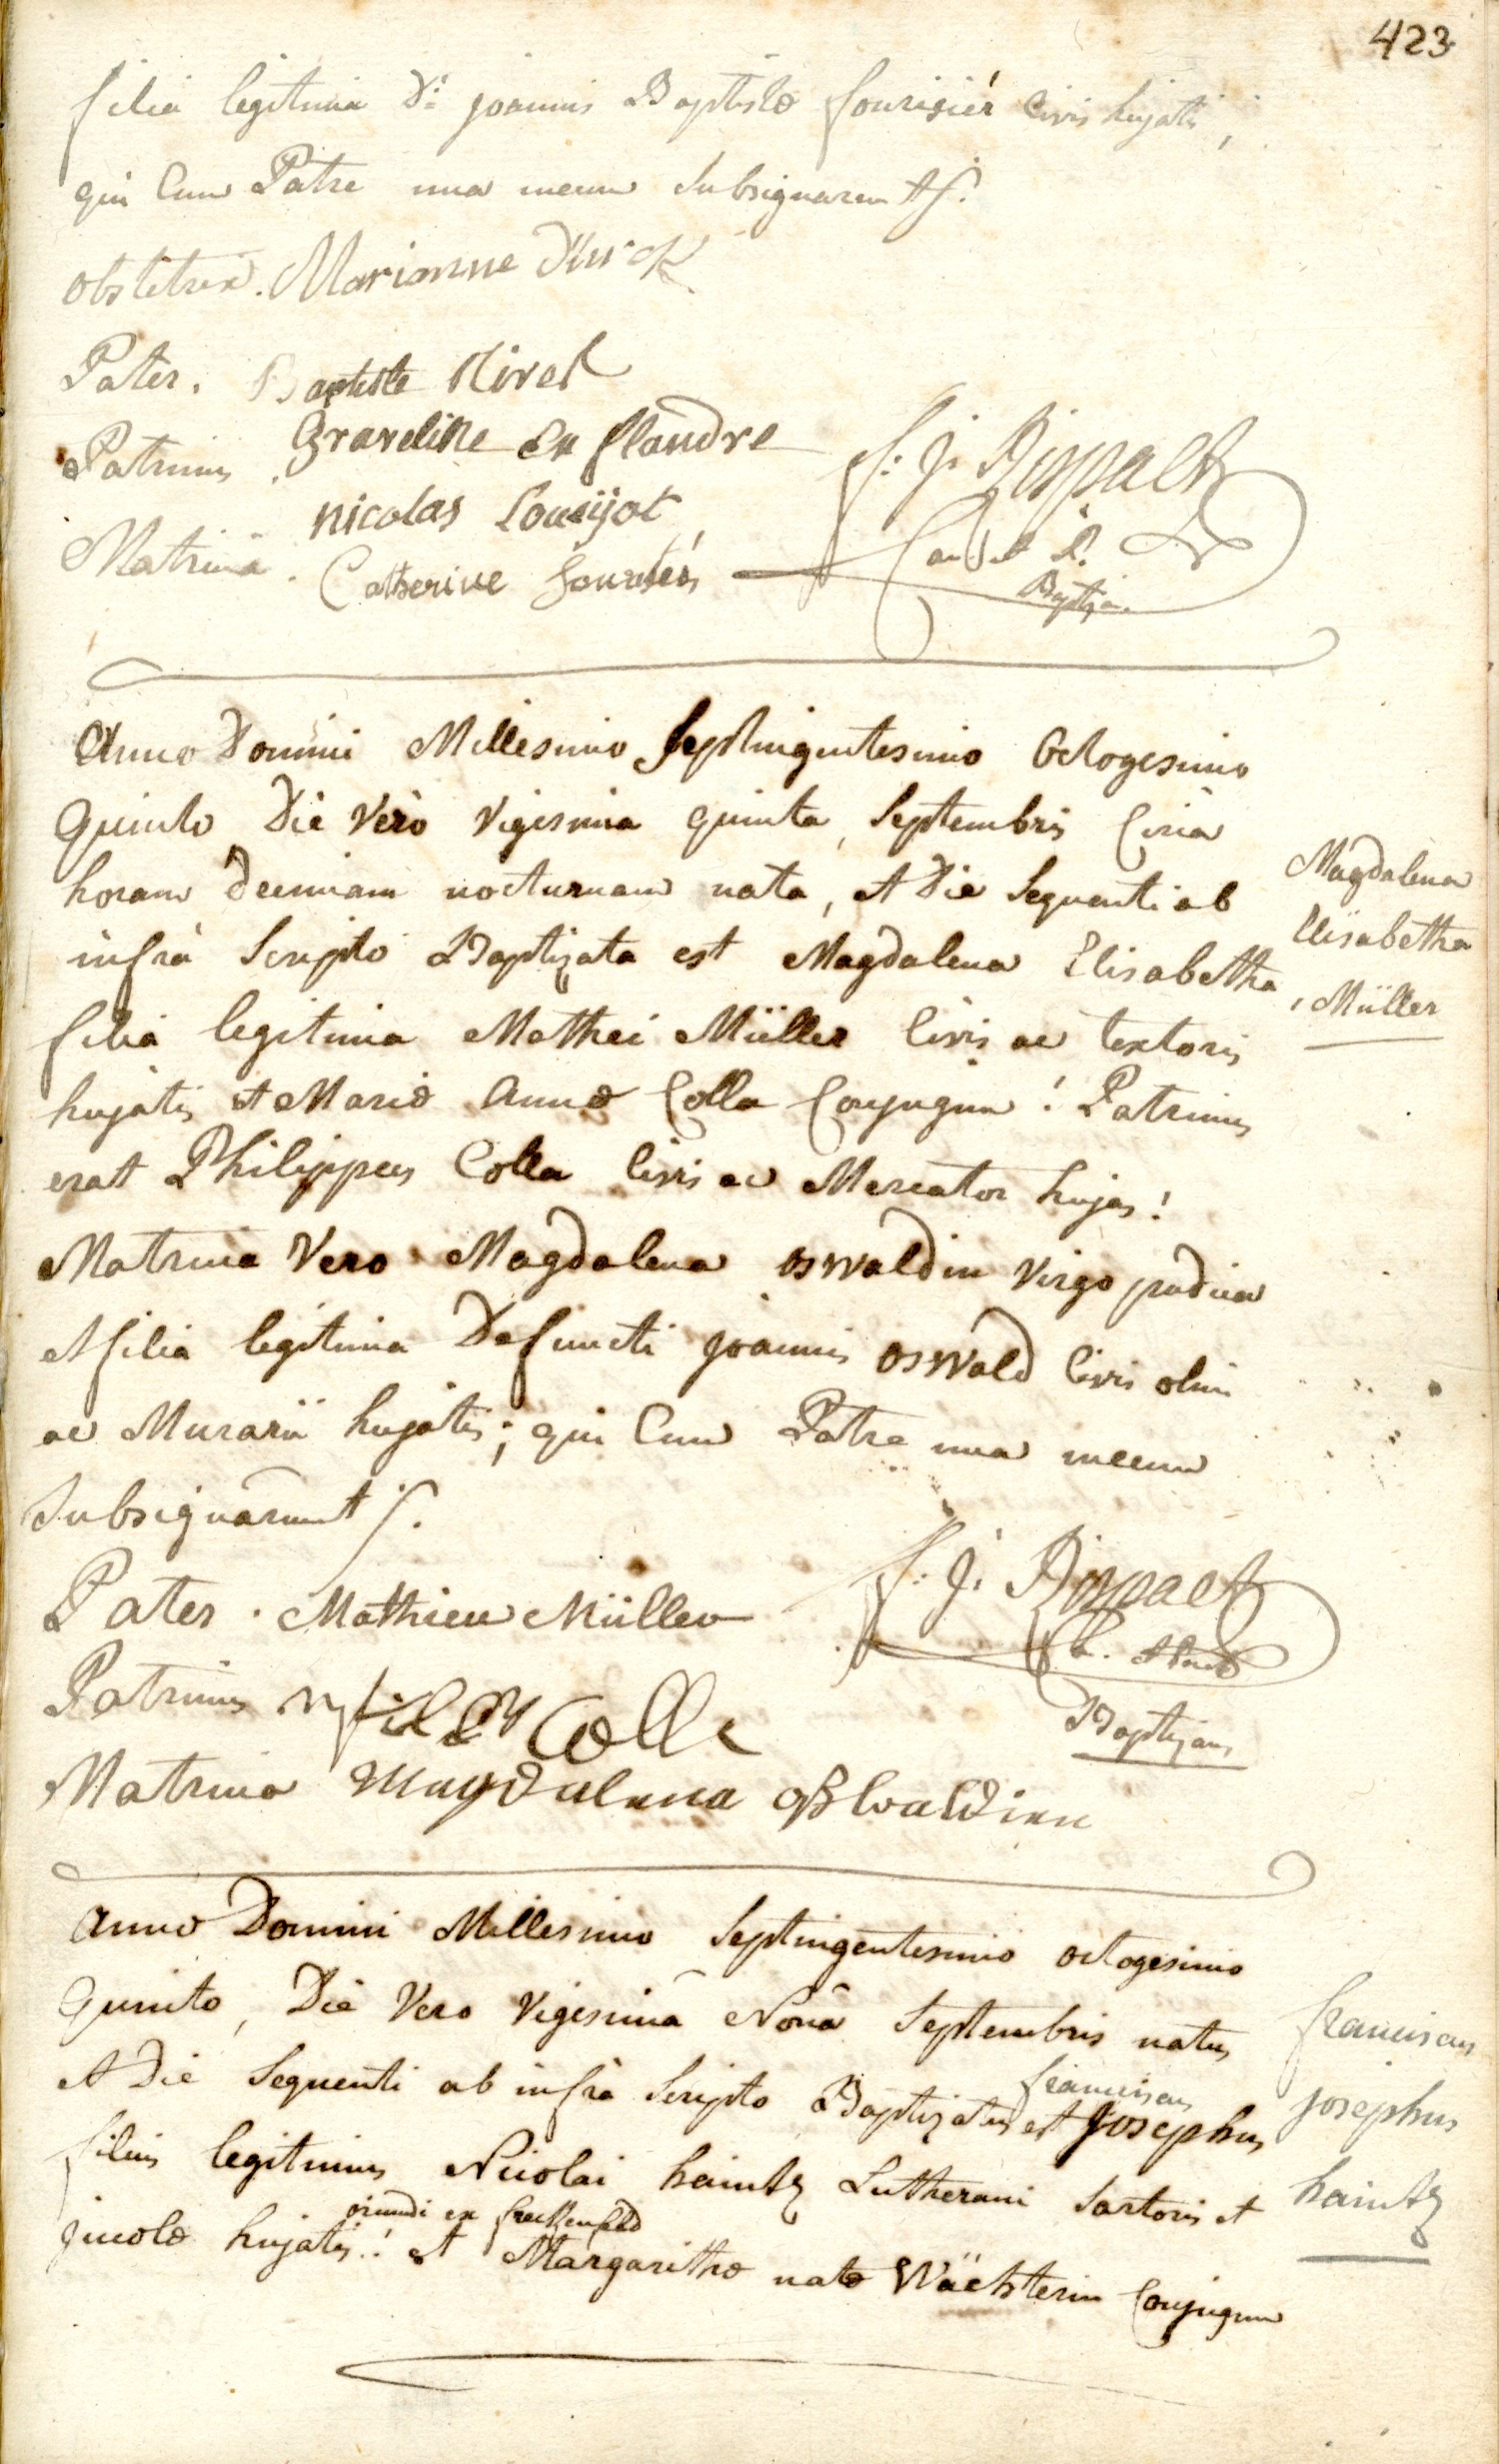 423
filia legitima Di joannis Baptistæ fourisier Civis hujatis,
qui Cum Patre una mecum Subsignarunt
obstetrix. Marianne
Pater. Baptiste
Graveline En flandre
Patrinus
nicolas
Matrina. Catherine
f: j:
Baptizans
Anno Domini Millesimo Septingentesimo Octogesimo
Quinto Die Verò Vigesima quinta, Septembris Circà
horam decimam nocturnam nata, et Die Sequenti ab
infrà Scripto Baptizata est Magdalena Elisabetha
Magdalena
Elisabetha
Müller
filia legitima Mathei Müller Civis ac textoris
hujatis et Mariæ Annæ Colla Conjugum! Patrinus
erat Philippus Colla Civis ac Mercator hujas!
Matrina Vero Magdalena oswaldin Virgo pudica
et filia legitima Defuncti joannis oswald Civis olim
ac Murarii hujatis; qui Cum Patre una mecum
Subsignarunt
Pater. Mathieu Müller
f: j:
Patrinus Colla
Baptizans
Matrina Magdalena oßwaldin
Anno Domini Millesimo Septingentesimo octogesimo
Quinto, Die Vero Vigesimâ Nonâ Septembris natus
et Die Sequenti ab infrà Scripto Baptizatus est franciscus Josephus
franciscus
josephus
haintz
filius legitimus Nicolai haintz Lutherani Sartoris et
jncolæ hujatis! oriundi ex freckenfeld et Margarithæ natæ Wächterin Conjugum